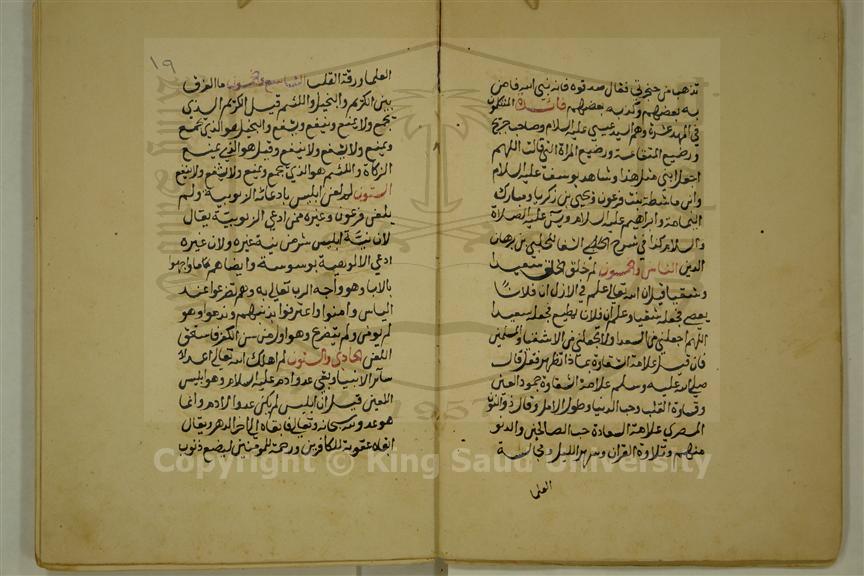 تذهبا من حنجرتي فقال صدقوه فانه نبي الله فامن
به بعضهم وكذبه بعضهم فائدة المتكلمون
في المهد عشرة وهم السيد عيسى عليه السلام وصاحب جريج
ورضيع المتقاعسة ورضيع المراة التي قالت اللهم
اجعل ابني مثل هذا وشاهد يوسف عليه السلام
وابن ماشطة بنت فرعون ويحيى بن زكريا ومبارك
اليمامة وابراهيم عليه السلام و عليه الصلاة
والسلام كذا في شرح الحلبي بن برهان
الدين الثامن والخمسون لم خلق الخلق سعيدا
وشقيا قيل ان الله تعالى علم في الازل ان فلانا
يعصي فجعله شقيا وعلم ان فلان يطيع فجعله سعيدا
اللهم اجعلني من السعدا ولا تجعلني من الاشقيا والمسلمين
فان قيل علامة الشقاوة بماذا تظهر فقل قال
صلى الله عليه وسلم علامة الشقاوة جمود العين
وقساوة القلب وحب الدنيا وطول الامل وقال ذو النون
المصري علامة السعادة حب الصالحين والدنو
منهم وتلاوة القران وسهر الليل ومجالسة
العلما
١٩
العلما ورقة القلب التاسع والخمسون ما الفرق
بين الكريم والبخيل واللئيم قيل الكريم الذي
يجمع ولا يمنع وينفع ويشفع والبخيل هو الذي يجمع
ويمنع ولا يشفع ولا ينفع وقيل هو الذي يمنع
الزكاة واللئيم هو الذي يجمع ويمنع ولا يشفع ولا ينفع
الستون لم لعن ابليس بادعائه الربوبية ولم
يلعن فرعون وغيره ممن ادعى الربوبية يقال
لان نية ابليس شر من نية غيره ولان غيره
ادعى الالوهية بوسوسة وايضا هم
بالابا وهو واجه الرب تعالى به وهم تضرعوا عند
الياس وامنوا واعترفوا بذنبهم وندموا وهو
لم يؤمن ولم يتضرع وهو اول من سن الكفر فاستحق
اللعن الحادي والستون لم اهلك الله تعالى اعداء
سائر الانبيا وبقي عدو ادم عليه السلام وهو ابليس
اللعين قيل ان ابليس لم يكن عدوا لادم وانما
هو عدو سبحانه وتعالى فابقاه الى اخر الدهر يقال
ابقاه عقوبة للكافرين ورحمة للمؤمنين ليضع ذنوب
Copyright © King Saud University
1957